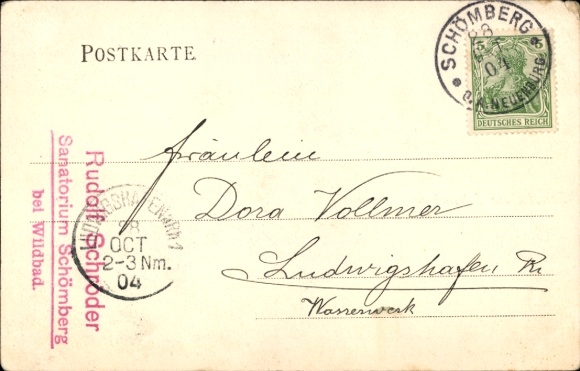 POSTKARTE.
SCHÖMBERG
28
OCT
04
O.A. NEUENBÜRG
5 5
DEUTSCHES REICH
Fräulein
Dora Vollmer
Ludwigshafen Rh
Wasserwerk
Rudolf Schröder
Sanatorium Schömberg
bei Wildbad.
LUDWIGSHAFEN
28
OCT
2-3 Nm.
04